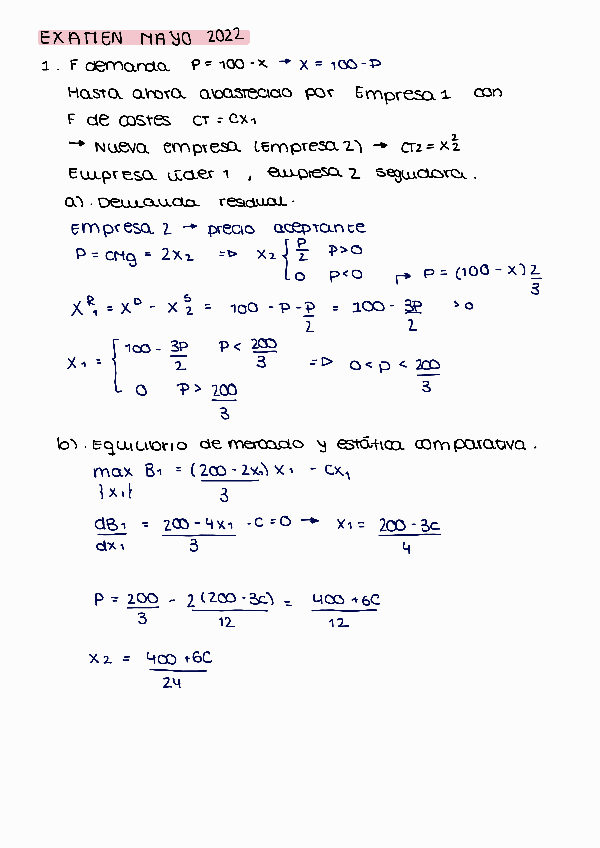 EXAMEN MAYO 2022
1. F demanda P = 100 - X → X = 100 - P
Hasta ahora abastecido por Empresa 1 con
F de costes CT = CX₁
→ Nueva empresa (Empresa 2) → CT₂ = X₂²
Empresa líder 1, empresa 2 seguidora.
a). Demanda residual.
Empresa 2 → precio aceptante
P = CMg = 2X₂ => X₂ { P/2 P>0
0 P<0 ↱ P = (100 - X) 2/3
X₁ᴿ = Xᴰ - X₂ˢ = 100 - P - P/2 = 100 - 3P/2 >0
X₁ = { 100 - 3P/2 P < 200/3 => 0 < P < 200/3
0 P > 200/3
b). Equilibrio de mercado y estática comparativa.
max B₁ = (200 - 2X₁)/3 X₁ - CX₁
{X₁}
dB₁/dX₁ = (200 - 4X₁)/3 - C = 0 → X₁ = (200 - 3C)/4
P = 200/3 - 2(200 - 3C)/12 = (400 + 6C)/12
X₂ = (400 + 6C)/24